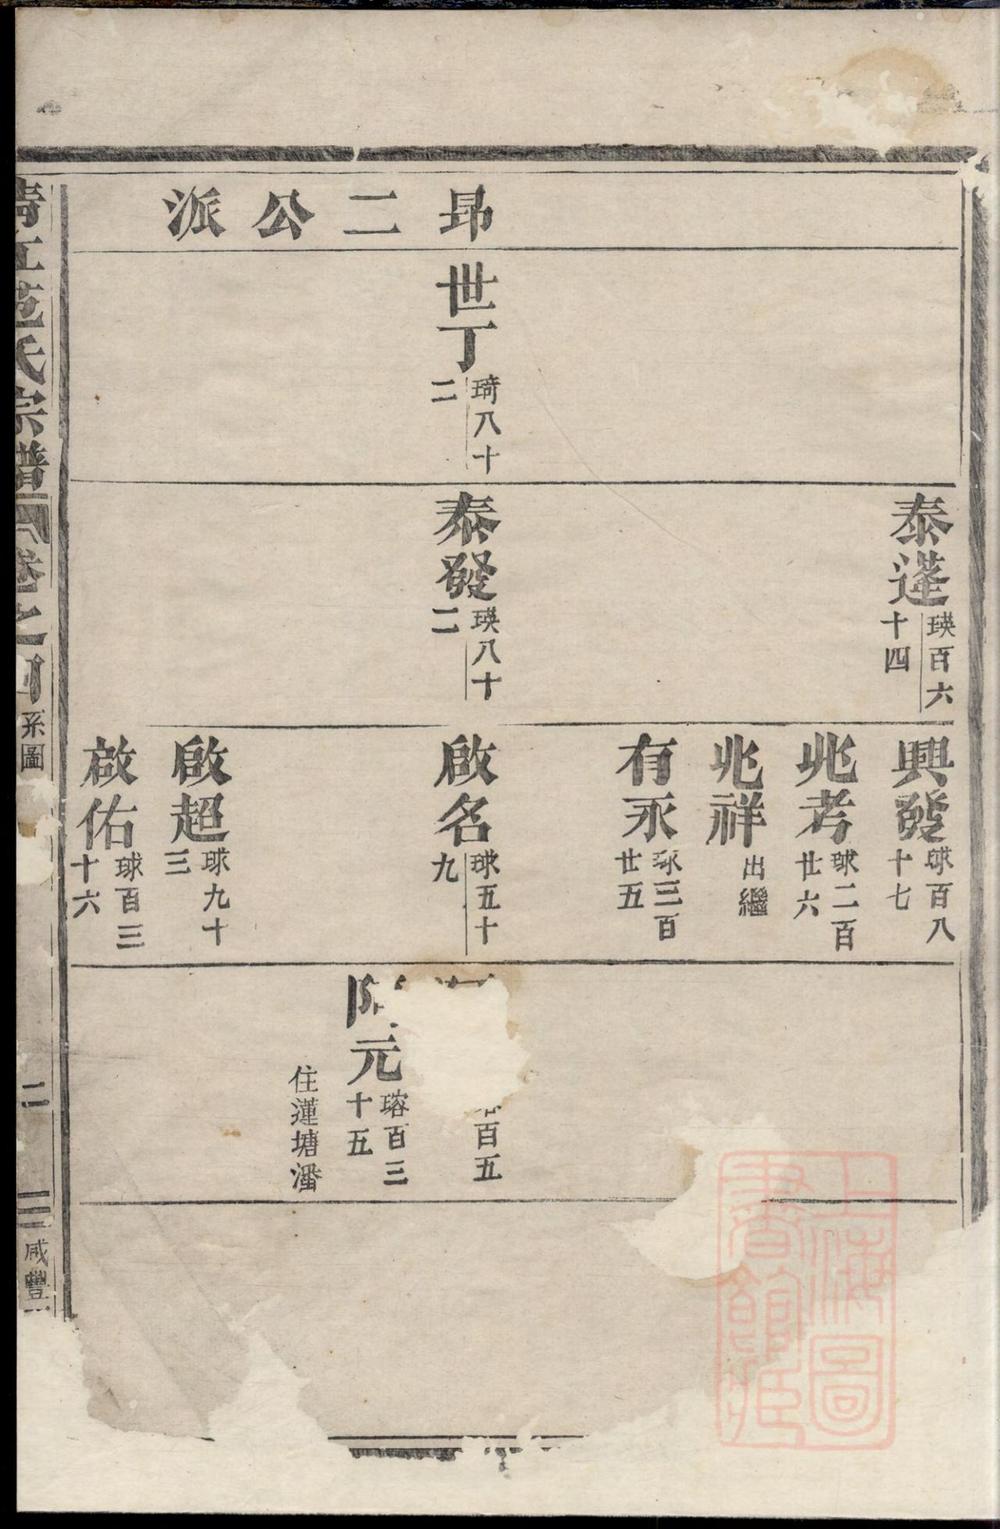 昻二公派
世丁 琦八十二
泰蓬 瑛百六十四
泰發 瑛八十二
興發 球百八十七
兆考 球二百廿六
兆祥 出繼
有永 球三百廿五
啟名 球五十九
啟超 球九十三
啟佑 球百三十六
百五
元 瑢百三十五
住蓮塘潘
琦江范氏宗譜 卷之 系圖 二 咸豐
上海圖書館